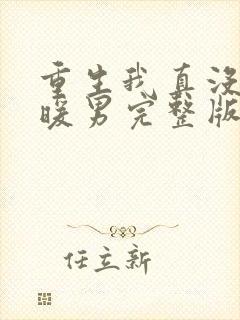 重生我真没
暖男完整版
任立新